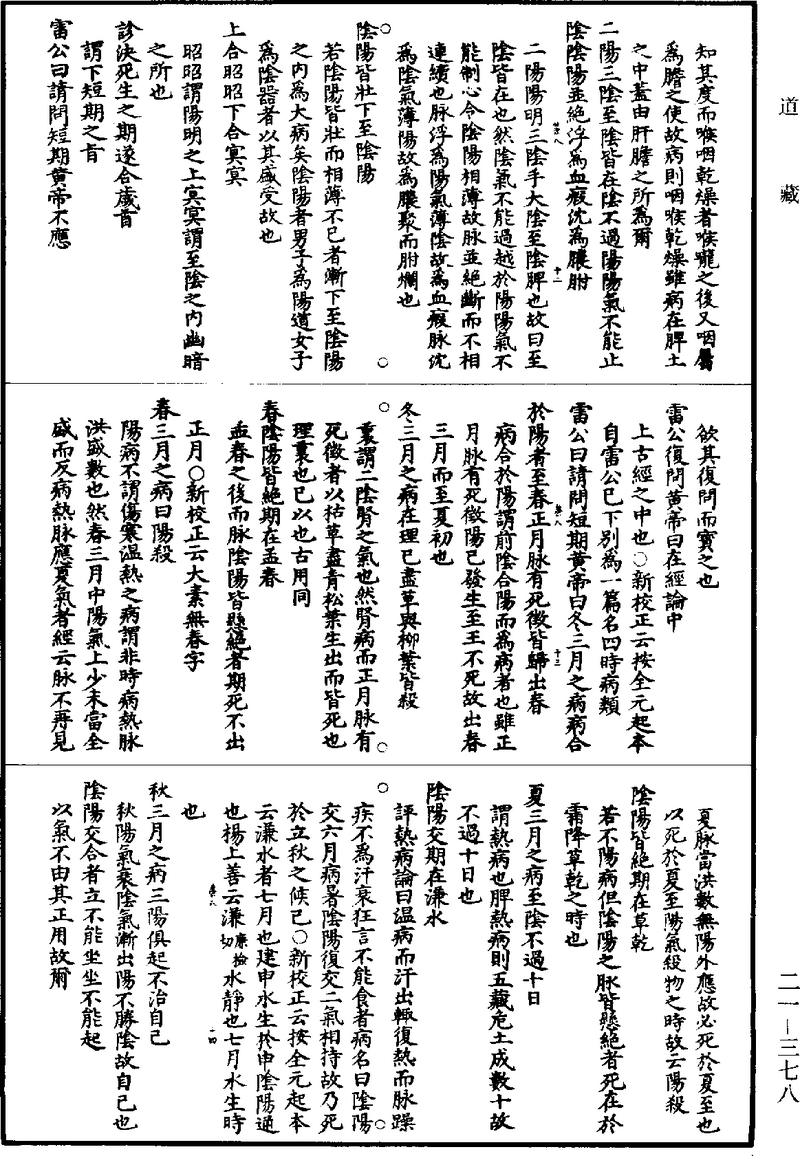 道藏
知其度而喉咽乾燥者喉嚨之後又咽屬
爲膽之使故病則咽喉乾燥雖病在脾土
之中蓋由肝膽之所爲爾
二陽三陰至陰皆在陰不過陽陽氣不能止
陰陰陽並絕浮爲血瘕沈爲膿胕
二陽陽明三陰手大陰至陰脾也故曰至
陰皆在也然陰氣不能過越於陽陽氣不
能制心令陰陽相薄故脉並絕斷而不相
連續也脉浮爲陽氣薄陰故爲血瘕脉沈
爲陰氣薄陽故爲膿聚而胕爛也
陰陽皆壯下至陰陽
若陰陽皆壯而相薄不已者漸下至陰陽
之內爲大病矣陰陽者男子爲陽道女子
爲陰器者以其盛受故也
上合昭昭下合冥冥
昭昭謂陽明之上冥冥謂至陰之內幽暗
之所也
診決死生之期遂合歲首
謂下短期之旨
雷公曰請問短期黃帝不應
欲其復問而寶之也
雷公復問黃帝曰在經論中
上古經之中也○新校正云按全元起本
自雷公已下別爲一篇名四時病類
雷公曰請問短期黃帝曰冬三月之病病合
於陽者至春正月脉有死徵皆歸出春
病合於陽謂前陰合陽而爲病者也雖正
月脉有死徵陽已發生至王不死故出春
三月而至夏初也
冬三月之病在理已盡草與柳葉皆殺
裏謂二陰腎之氣也然腎病而正月脉有
死徵者以枯草盡青松葉生出而皆死也
理裏也已以也古用同
春陰陽皆絕期在孟春
孟春之後而脉陰陽皆懸絕者期死不出
正月○新校正云大素無春字
春三月之病曰陽殺
陽病不謂傷寒温熱之病謂非時病熱脉
洪盛數也然春三月中陽氣上少未當全
盛而反病熱脉應夏氣者經云脉不再見
夏脉當洪數無陽外應故必死於夏至也
以死於夏至陽氣殺物之時故云陽殺
陰陽皆絕期在草乾
若不陽病但陰陽之脉皆懸絕者死在於
霜降草乾之時也
夏三月之病至陰不過十日
謂熱病也脾熱病則五藏危土成數十故
不過十日也
陰陽交期在溓水
評熱病論曰温病而汗出輒復熱而脉躁
疾不爲汗衰狂言不能食者病名曰陰陽
交六月病暑陰陽復交二氣相持故乃死
於立秋之候已○新校正云按全元起本
云溓水者七月也建申水生於申陰陽逆
也楊上善云溓廉檢切水靜也七月水生時
也
秋三月之病三陽俱起不治自已
秋陽氣衰陰氣漸出陽不勝陰故自已也
陰陽交合者立不能坐坐不能起
以氣不由其正用故爾
二一—三七八